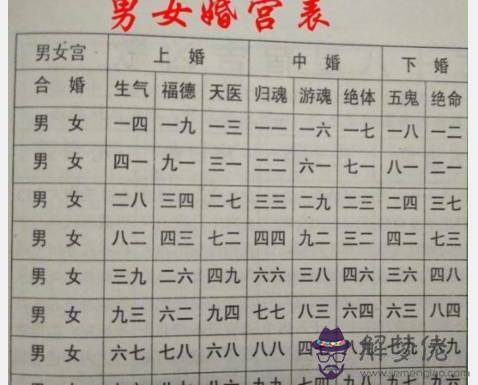 男女婚宫表
男女宫 上 婚 中 婚 下 婚
合 婚 生气 福德 天医 归魂 游魂 绝体 五鬼 绝命
男 女 一四 一九 一三 一一 一六 一七 一八 一二
男 女 四一 九一 三一 二二 六一 七一 八一 二一
男 女 二八 三四 二七 三三 二九 二三 二四 三七
男 女 八二 四三 七二 四四 九二 三二 四二 七三
男 女 三九 二六 四九 六六 三八 四六 三六 四八
男 女 九三 六二 九四 七七 八三 六四 六三 八四
男 女 六七 七八 六八 八八
解梦佬